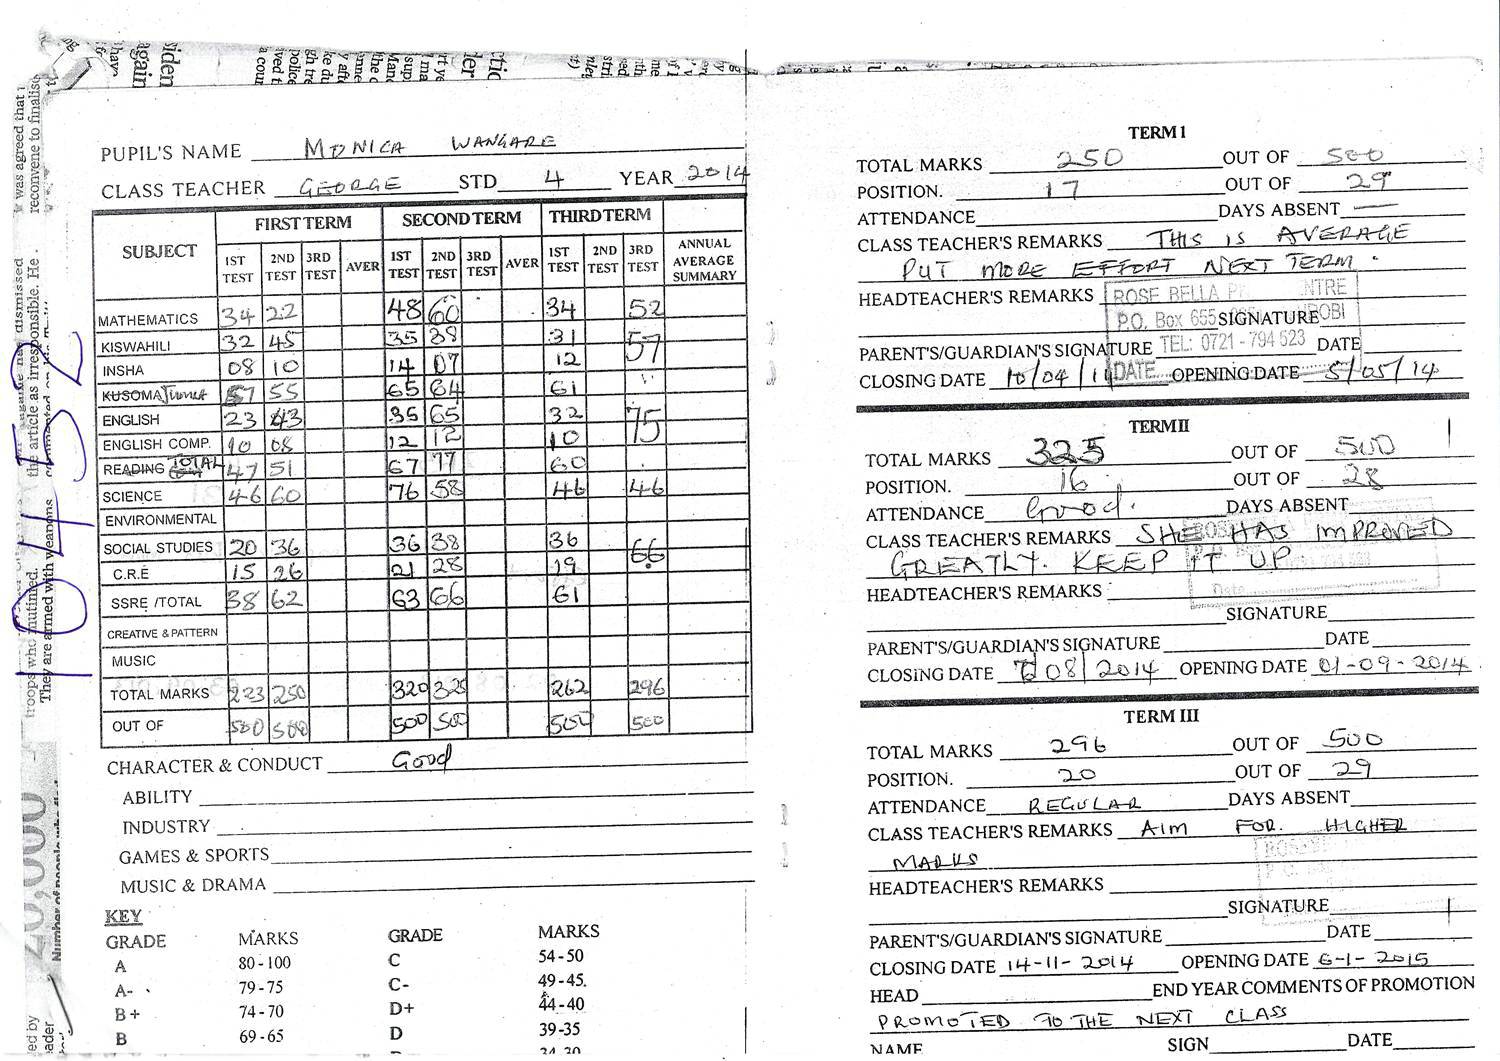 PUPIL'S NAME MONICA WANGARE
CLASS TEACHER GEORGE STD 4 YEAR 2014
SUBJECT FIRST TERM SECOND TERM THIRD TERM
1ST TEST 2ND TEST 3RD TEST AVER 1ST TEST 2ND TEST 3RD TEST AVER 1ST TEST 2ND TEST 3RD TEST ANNUAL AVERAGE SUMMARY
MATHEMATICS 34 22 48 60 34 52
KISWAHILI 32 45 35 38 31 57
INSHA 08 10 14 07 12
KUSOMA 57 55 65 64 61
ENGLISH 23 43 35 65 32 75
ENGLISH COMP. 10 08 12 12 10
READING TOTAL 47 51 67 77 60
SCIENCE 46 60 76 58 46 46
ENVIRONMENTAL
SOCIAL STUDIES 20 36 36 38 36 66
C.R.E 15 26 21 28 19
SSRE /TOTAL 38 62 63 66 61
CREATIVE & PATTERN
MUSIC
TOTAL MARKS 223 250 320 325 262 296
OUT OF 500 500 500 500 500 500
CHARACTER & CONDUCT Good
ABILITY
INDUSTRY
GAMES & SPORTS
MUSIC & DRAMA
KEY
GRADE MARKS GRADE MARKS
A 80-100 C 54-50
A- 79-75 C- 49-45.
B+ 74-70 D+ 44-40
B 69-65 D 39-35
34-30
TERM 1
TOTAL MARKS 250 OUT OF 500
POSITION. 17 OUT OF 29
ATTENDANCE DAYS ABSENT —
CLASS TEACHER'S REMARKS THIS IS AVERAGE
PUT MORE EFFORT NEXT TERM.
HEADTEACHER'S REMARKS ROSE BELLA
P.O. Box 655 SIGNATURE
PARENT'S/GUARDIAN'S SIGNATURE TEL: 0721-794 523 DATE
CLOSING DATE 10/04/14 DATE OPENING DATE 5/05/14
TERM II
TOTAL MARKS 325 OUT OF 500
POSITION. 16 OUT OF 28
ATTENDANCE Good. DAYS ABSENT
CLASS TEACHER'S REMARKS SHE HAS IMPROVED
GREATLY. KEEP IT UP
HEADTEACHER'S REMARKS
Date
SIGNATURE
PARENT'S/GUARDIAN'S SIGNATURE DATE
CLOSING DATE 08/2014 OPENING DATE 01-09-2014
TERM III
TOTAL MARKS 296 OUT OF 500
POSITION. 20 OUT OF 29
ATTENDANCE REGULAR DAYS ABSENT
CLASS TEACHER'S REMARKS AIM FOR HIGHER
MARKS
HEADTEACHER'S REMARKS
SIGNATURE
PARENT'S/GUARDIAN'S SIGNATURE DATE
CLOSING DATE 14-11-2014 OPENING DATE 6-1-2015
HEAD END YEAR COMMENTS OF PROMOTION
PROMOTED TO THE NEXT CLASS
NAME SIGN DATE
10452
was agreed that
reconvene to finalise
dismissed
the article as irresponsible. He
troops who mutinied.
They are armed with weapons
20,000